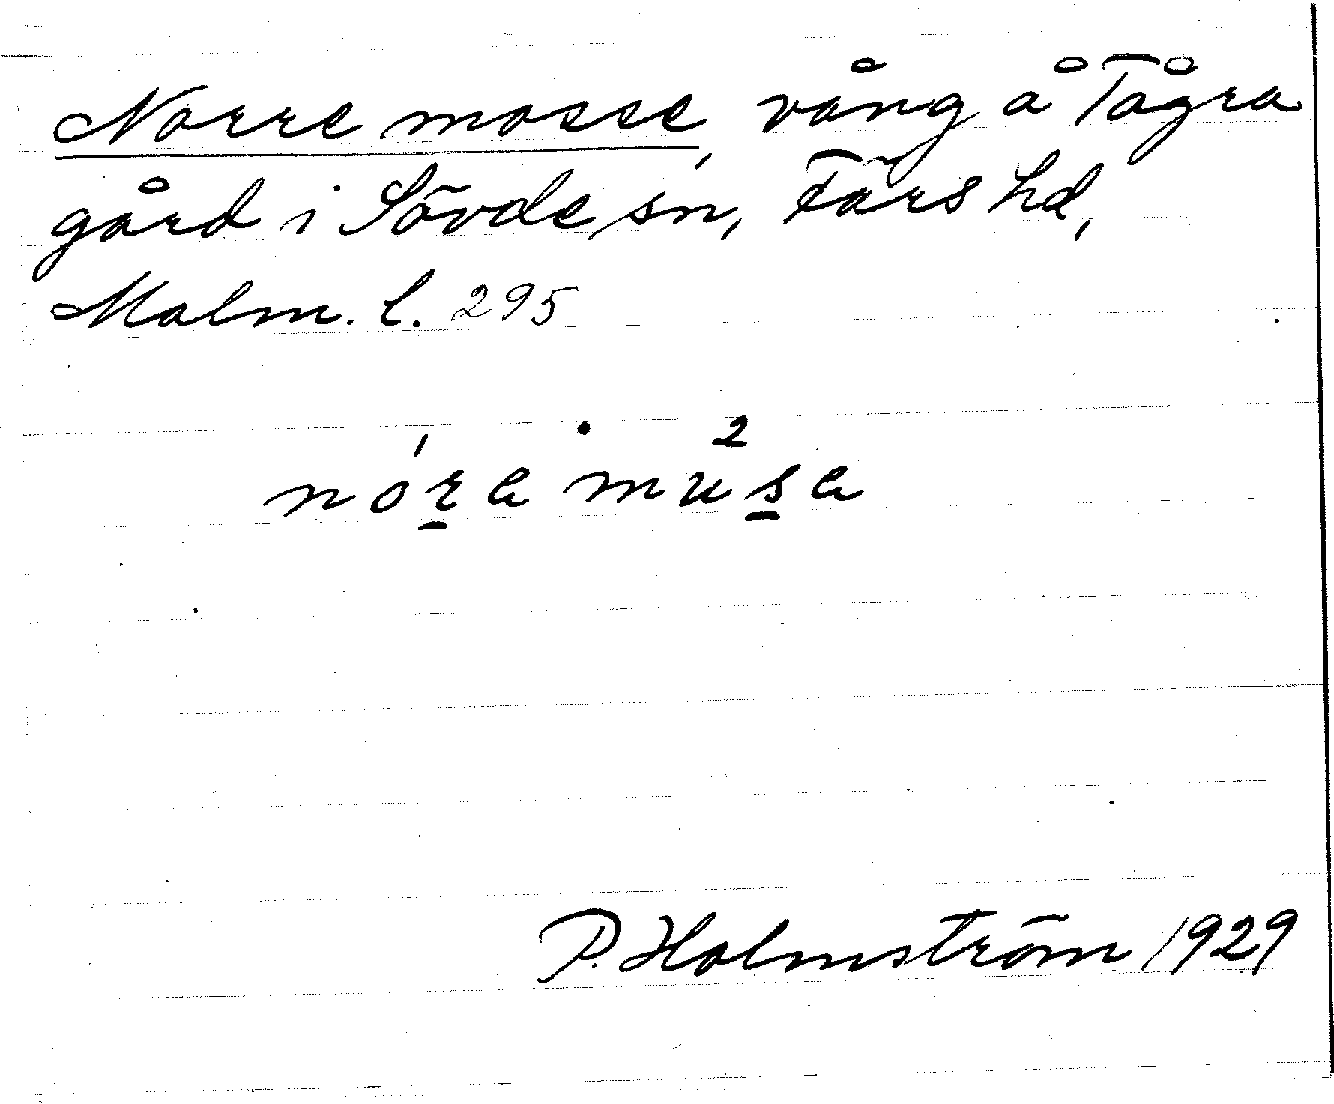 Norre mosse, vång å Tågra
gård i Sövde sn, Färs hd,
Malm. l. 295
nóra musa
P. Holmström 1929